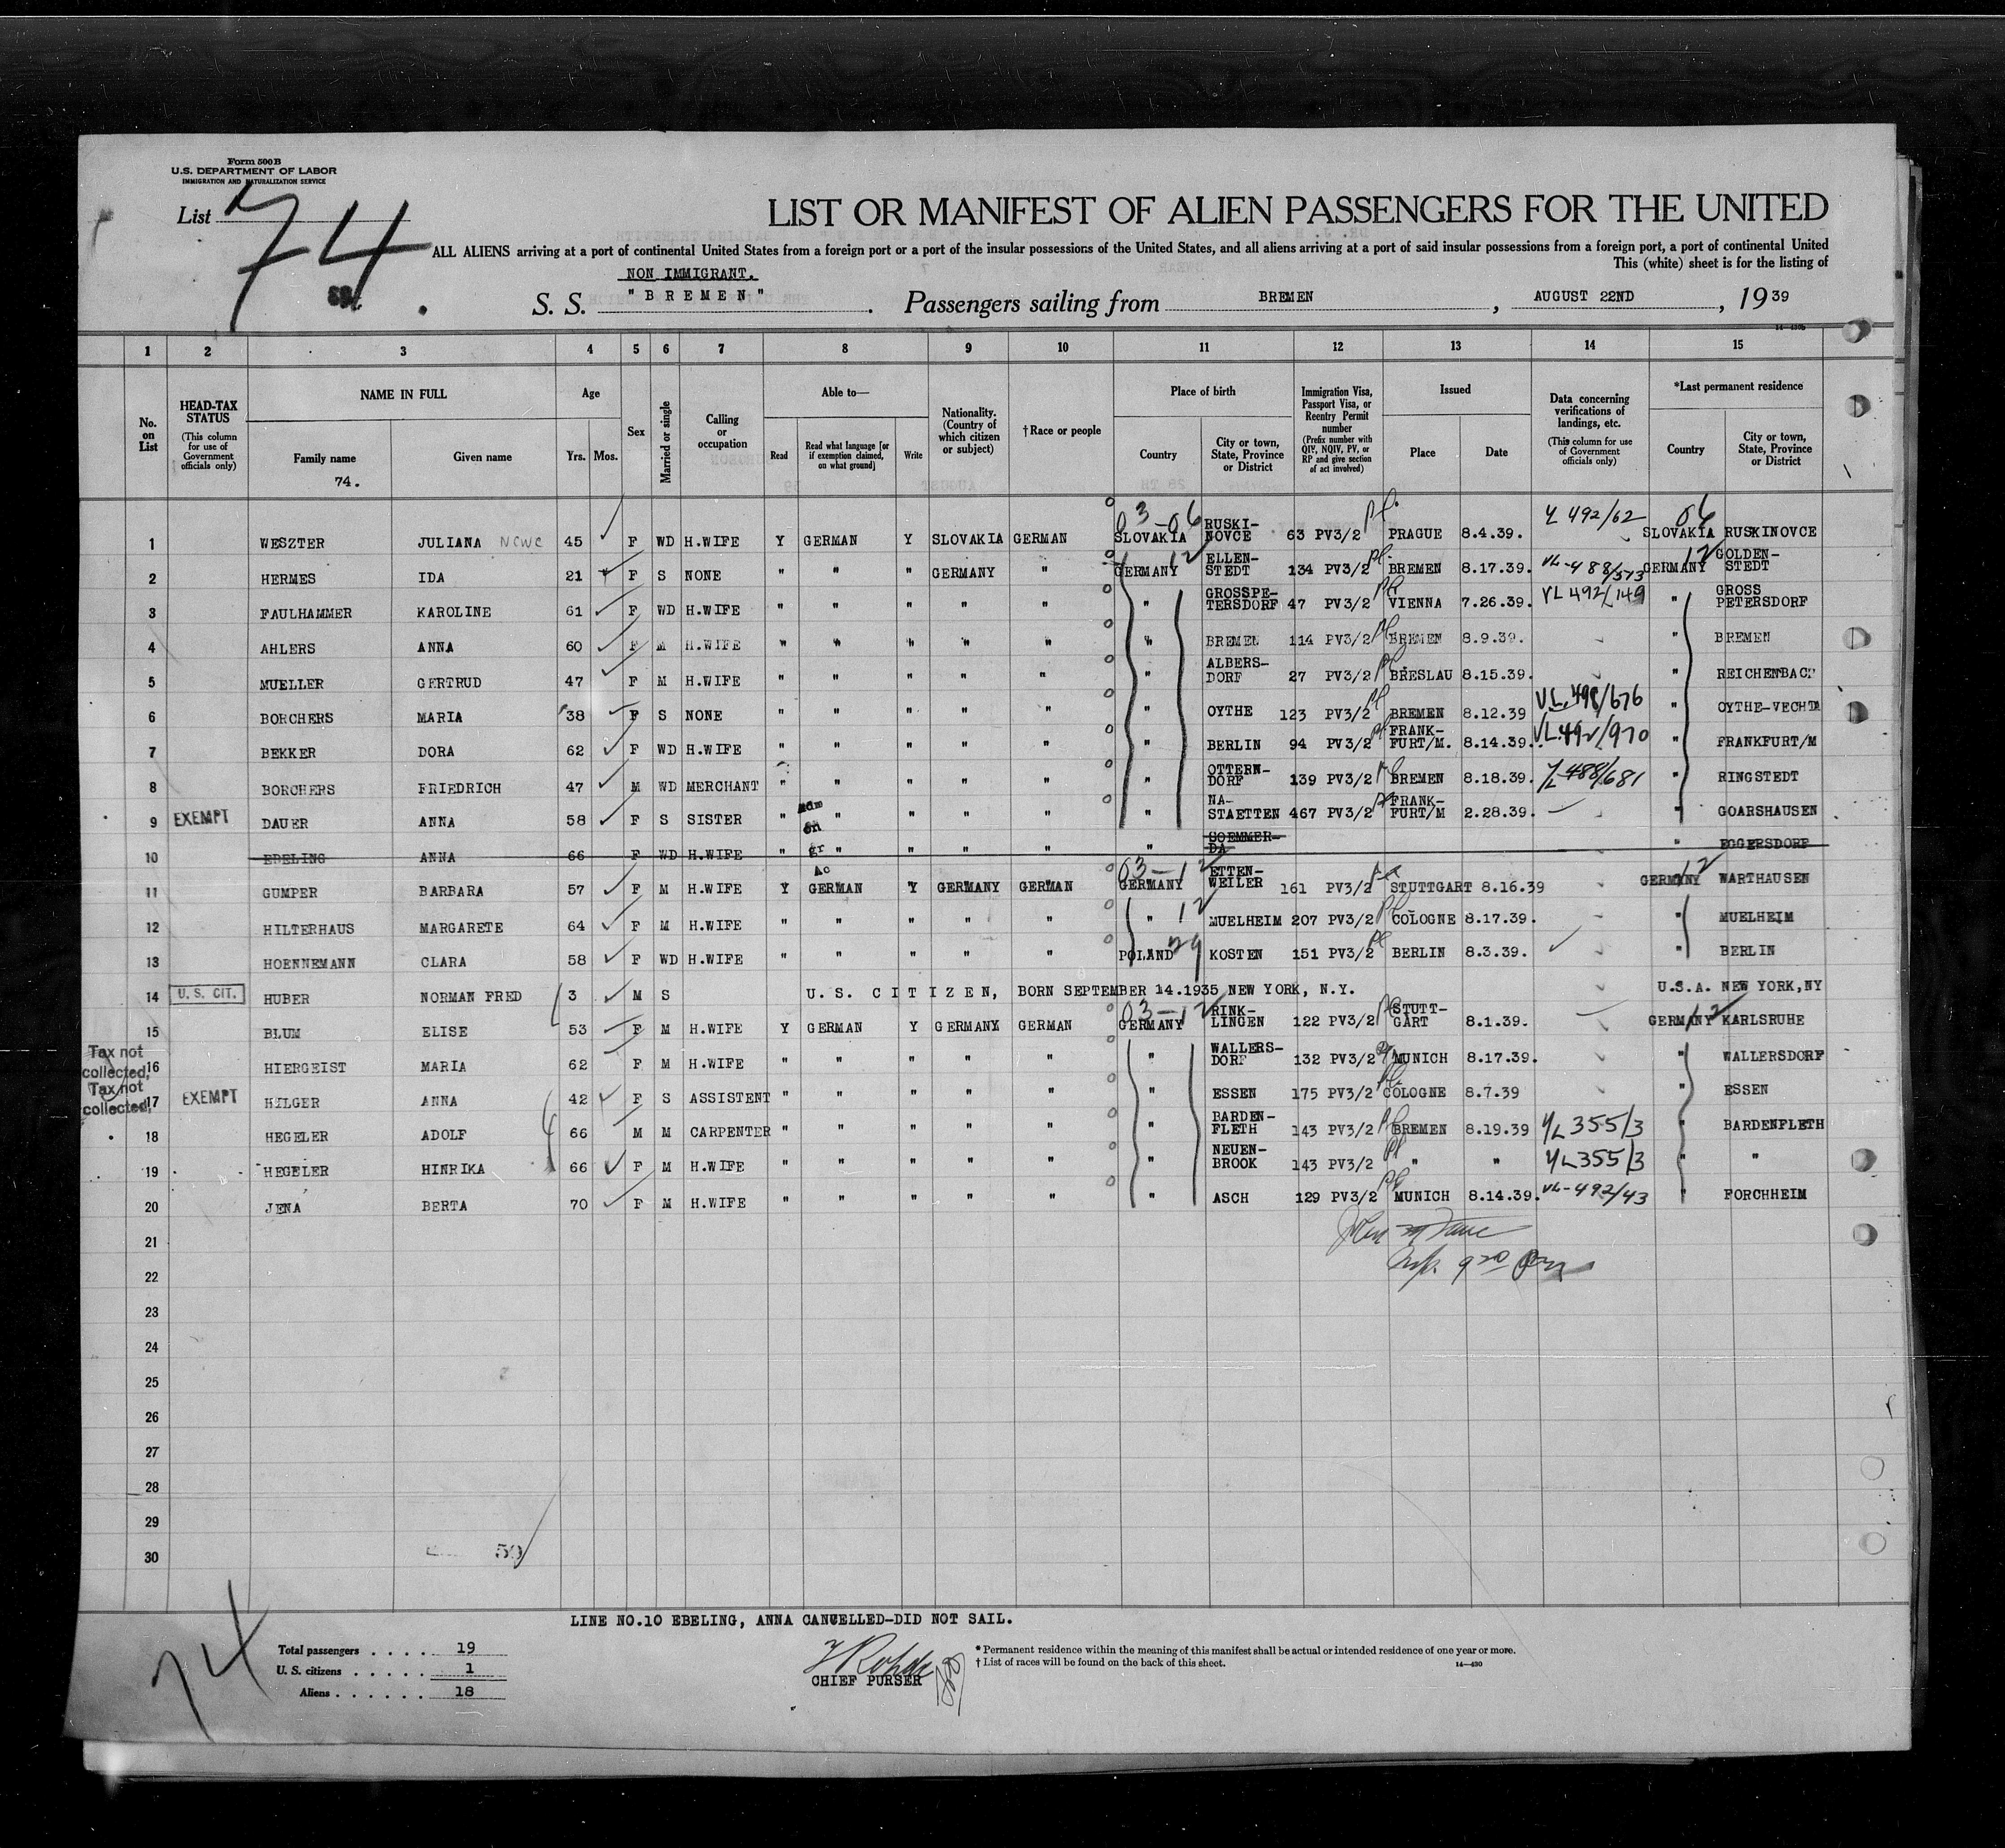 Form 500 B
U.S. DEPARTMENT OF LABOR
IMMIGRATION AND NATURALIZATION SERVICE
List 74
LIST OR MANIFEST OF ALIEN PASSENGERS FOR THE UNITED
ALL ALIENS arriving at a port of continental United States from a foreign port or a port of the insular possessions of the United States, and all aliens arriving at a port of said insular possessions from a foreign port, a port of continental United
This (white) sheet is for the listing of
NON IMMIGRANT.
S. S. "BREMEN". Passengers sailing from BREMEN, AUGUST 22ND, 1939
14-430b
1 2 3 4 5 6 7 8 9 10 11 12 13 14 15
No. on List
HEAD-TAX STATUS (This column for use of Government officials only)
NAME IN FULL Family name Given name
74.
Age Yrs. Mos.
Sex
Married or single
Calling or occupation
Able to— Read Read what language [or if exemption claimed, on what ground] Write
Nationality. (Country of which citizen or subject)
†Race or people
Place of birth Country City or town, State, Province or District
Immigration Visa, Passport Visa, or Reentry Permit number (Prefix number with QIV, NQIV, PV, or RP and give section of act involved)
Issued Place Date
Data concerning verifications of landings, etc. (This column for use of Government officials only)
*Last permanent residence Country City or town, State, Province or District
1 WESZTER JULIANA NCWC 45 F WD H.WIFE Y GERMAN Y SLOVAKIA GERMAN 03-06 SLOVAKIA RUSKI-NOVCE 63 PV3/2 PRAGUE 8.4.39. 492/62 06 SLOVAKIA RUSKINOVCE
2 HERMES IDA 21 F S NONE " " " GERMANY " GERMANY 12 ELLEN-STEDT 134 PV3/2 BREMEN 8.17.39. VL-488/573 GERMANY 12 GOLDEN-STEDT
3 FAULHAMMER KAROLINE 61 F WD H.WIFE " " " " " " GROSSPE-TERSDORF 47 PV3/2 VIENNA 7.26.39. VL 492/149 " GROSS PETERSDORF
4 AHLERS ANNA 60 F M H.WIFE " " " " " " BREMEN 114 PV3/2 BREMEN 8.9.39. " BREMEN
5 MUELLER GERTRUD 47 F M H.WIFE " " " " " " ALBERS-DORF 27 PV3/2 BRESLAU 8.15.39. " REICHENBACH
6 BORCHERS MARIA 38 F S NONE " " " " " " OYTHE 123 PV3/2 BREMEN 8.12.39 VL 498/676 " OYTHE-VECHTA
7 BEKKER DORA 62 F WD H.WIFE " " " " " " BERLIN 94 PV3/2 FRANK-FURT/M. 8.14.39. " FRANKFURT/M
8 BORCHERS FRIEDRICH 47 M WD MERCHANT " " " " " " OTTERN-DORF 139 PV3/2 BREMEN 8.18.39. VL 488/681 " RINGSTEDT
9 EXEMPT DAUER ANNA 58 F S SISTER " " " " " " NA-STAETTEN 467 PV3/2 FRANK-FURT/M 2.28.39. " GOARSHAUSEN
10 EBELING ANNA 66 F WD H.WIFE " " " " " " SOEMMER-DA " EGGERSDORF
11 GUMPER BARBARA 57 F M H.WIFE Y GERMAN Y GERMANY GERMAN 03-12 GERMANY ETTEN-WEILER 161 PV3/2 STUTTGART 8.16.39 12 GERMANY WARTHAUSEN
12 HILTERHAUS MARGARETE 64 F M H.WIFE " " " " " " 12 MUELHEIM 207 PV3/2 COLOGNE 8.17.39. " MUELHEIM
13 HOENNEMANN CLARA 58 F WD H.WIFE " " " " " POLAND 29 KOSTEN 151 PV3/2 BERLIN 8.3.39. " BERLIN
14 U. S. CIT. HUBER NORMAN FRED 3 M S U.S. CITIZEN, BORN SEPTEMBER 14.1935 NEW YORK, N.Y. U.S.A. NEW YORK,NY
15 BLUM ELISE 53 F M H.WIFE Y GERMAN Y GERMANY GERMAN 03-12 GERMANY RINK-LINGEN 122 PV3/2 STUTT-GART 8.1.39. GERMANY 12 KARLSRUHE
Tax not collected, 16 HIERGEIST MARIA 62 F M H.WIFE " " " " " " WALLERS-DORF 132 PV3/2 MUNICH 8.17.39. " WALLERSDORF
Tax not collected, 17 EXEMPT HILGER ANNA 42 F S ASSISTENT " " " " " " ESSEN 175 PV3/2 COLOGNE 8.7.39 " ESSEN
18 HEGELER ADOLF 66 M M CARPENTER " " " " " " BARDEN-FLETH 143 PV3/2 BREMEN 8.19.39 VL 355/3 " BARDENFLETH
19 HEGELER HINRIKA 66 F M H.WIFE " " " " " " NEUEN-BROOK 143 PV3/2 " " VL 355/3 " "
20 JENA BERTA 70 F M H.WIFE " " " " " " ASCH 129 PV3/2 MUNICH 8.14.39. VL-492/43 " FORCHHEIM
21
22
23
24
25
26
27
28
29
30
50
LINE NO.10 EBELING, ANNA CANCELLED-DID NOT SAIL.
74
Total passengers . . . . 19
U. S. citizens . . . . . 1
Aliens . . . . . . 18
CHIEF PURSER
* Permanent residence within the meaning of this manifest shall be actual or intended residence of one year or more.
† List of races will be found on the back of this sheet.
14-430